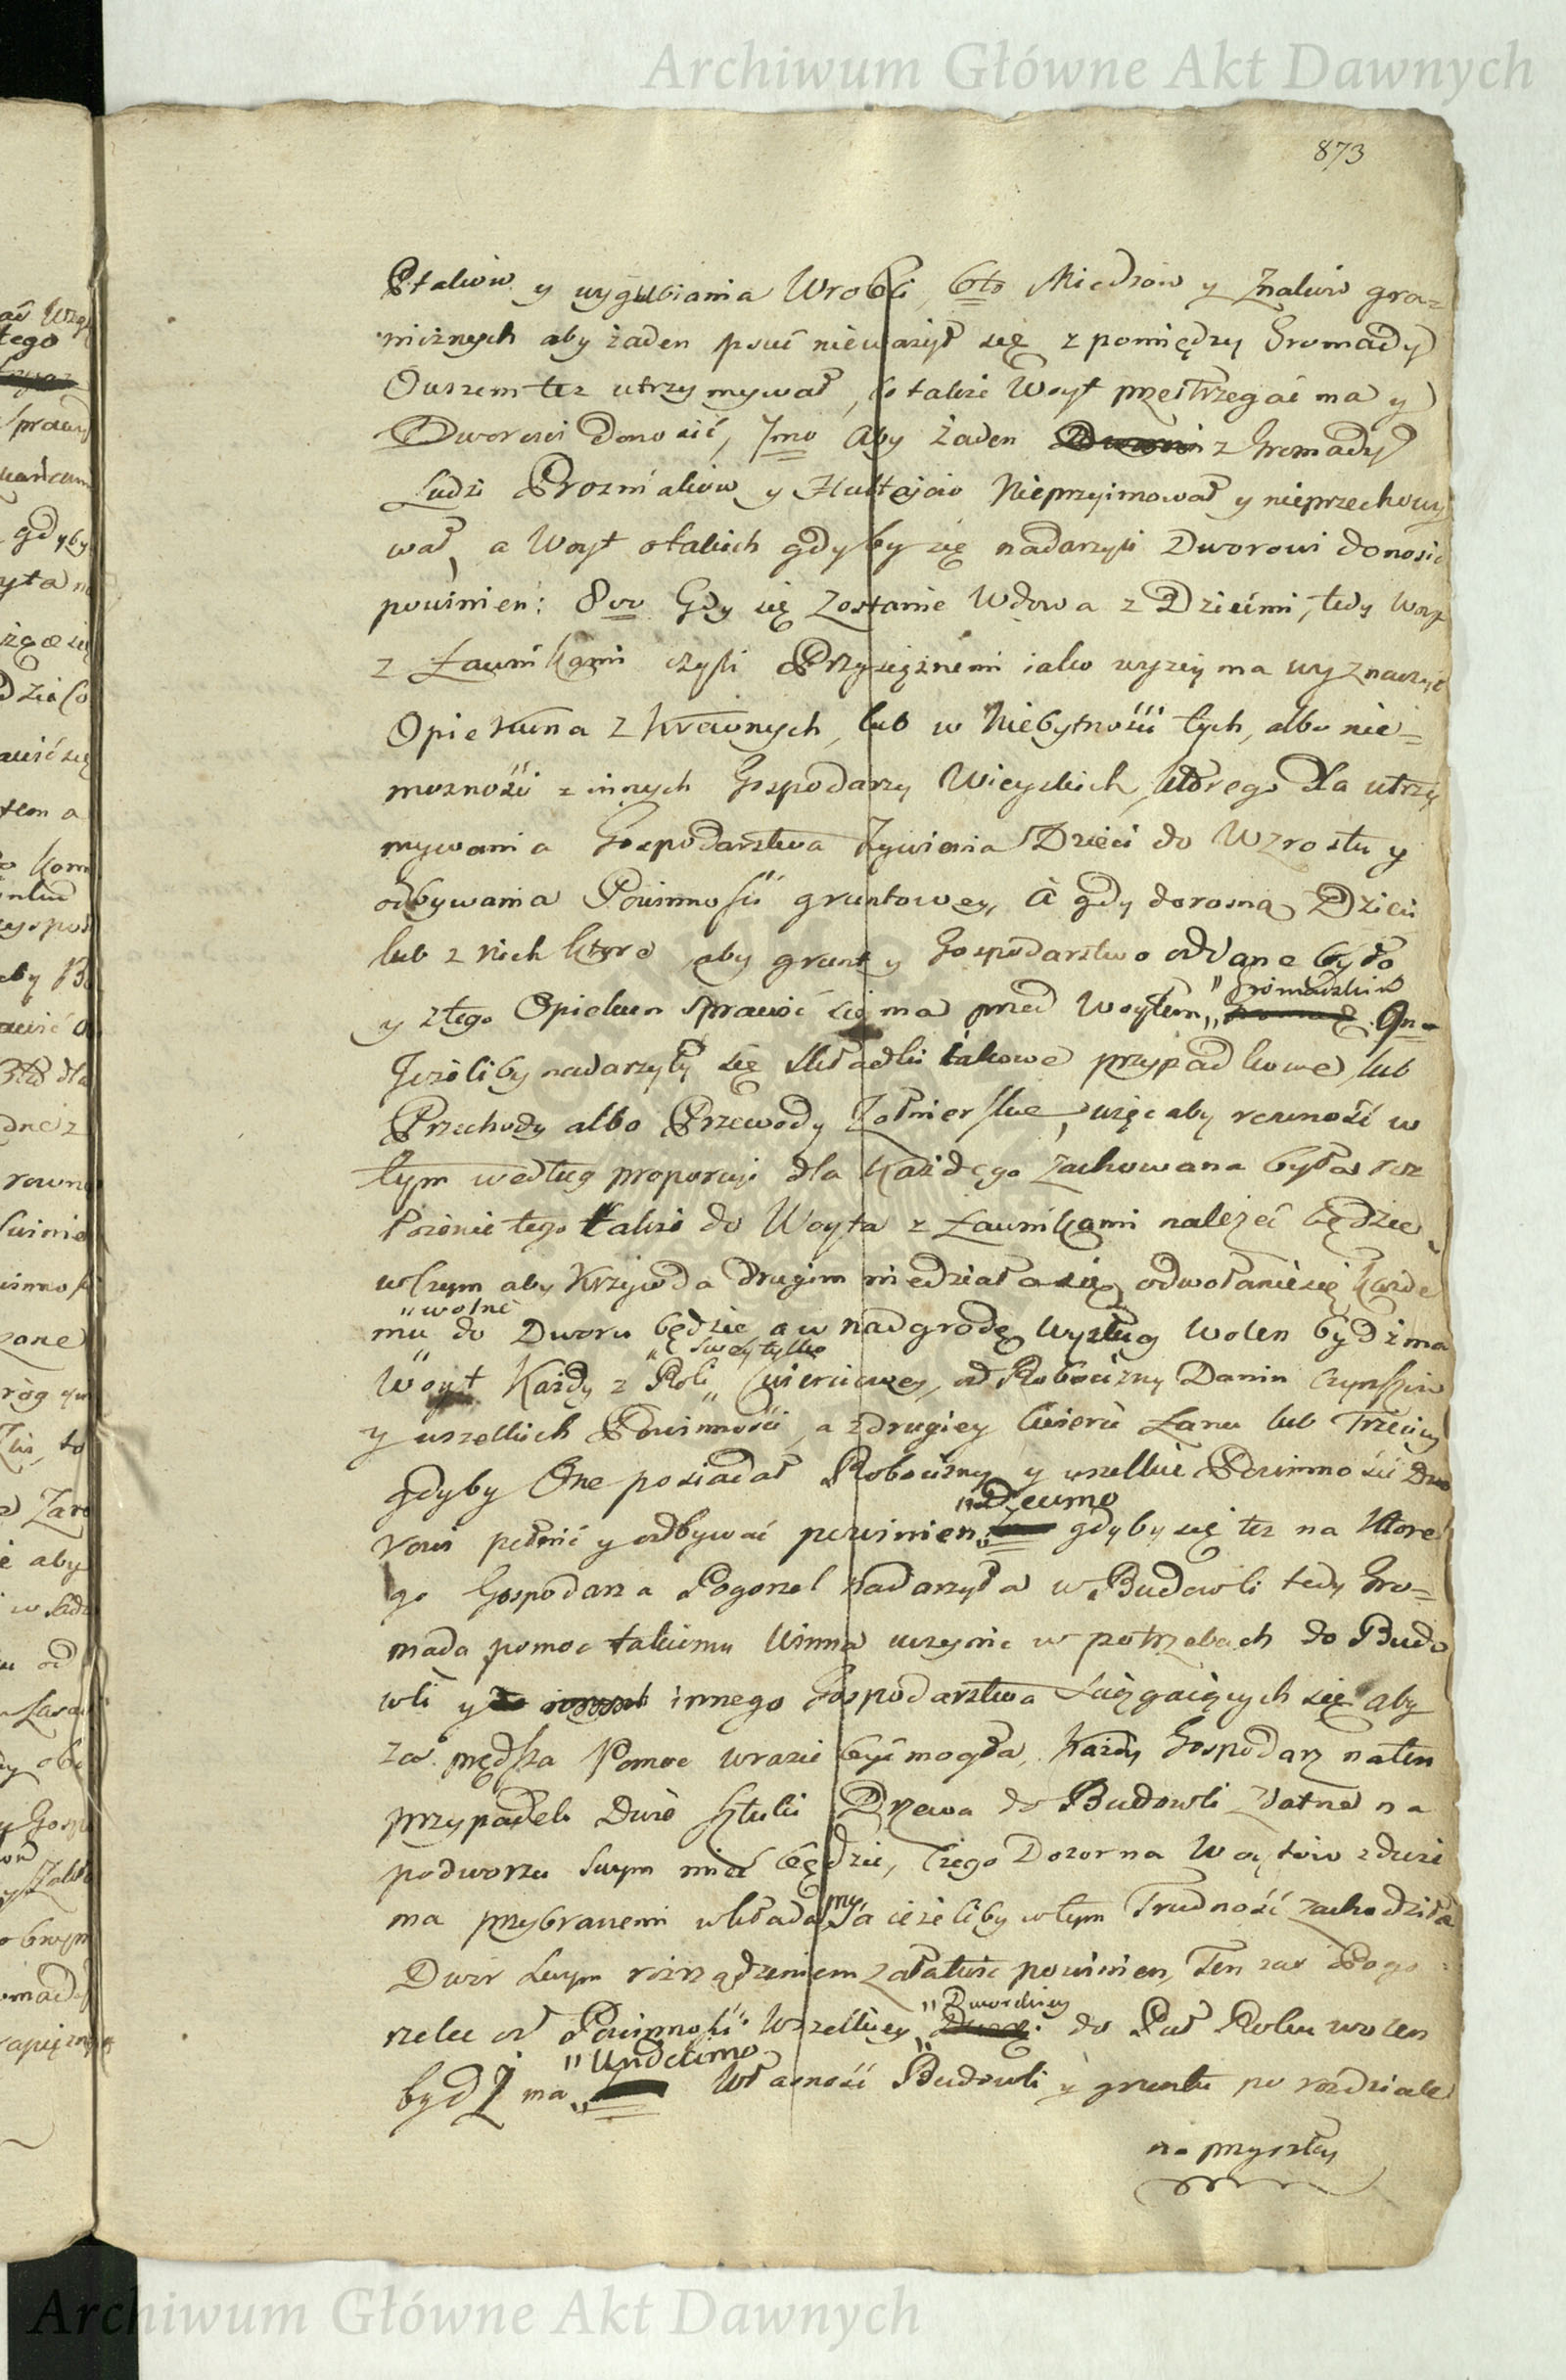 Archiwum Główne Akt Dawnych
873
Ptaków y wygubiania Wrobli, 6to Miedzów y Znaków gra=
nicznych aby żaden psuć nieważył się z pomiędzy Gromady
Owszem też utrzymywał, co także Woyt przestrzegać ma y
Dworowi donosić, 7mo Aby żaden z Gromady
Ludzi Prozniaków y Hultajów Nieprzyimował y nieprzechowy
wał, a Woyt o takich gdyby się nadarzyli Dworowi donosić
powinien: 8vo Gdy się Zostanie Wdowa z Dziećmi, tedy Woyt
z Ławnikami czyli Przysiężnemi iako wyżey ma wyznaczyć
Opiekuna z krewnych, lub w Niebytności tych, albo nie=
możności z innych Gospodarzy Wieyskich, którego dla utrzy
mywania Gospodarstwa Żywienia Dzieci do Wzrostu y
odbywania Powinności gruntowey, A gdy dorosną Dzieci
lub z nich które aby grunt y Gospodarstwo oddane było
y z tego Opiekun sprawić się ma przed Woytem „Gromadzkim 9no
Jeżeliby nadarzyły się składki takowe przypadkowe lub
Przechody albo Przewody Żołnierskie, więc aby rowność w
tym według proporcyi dla każdego zachowana była roz
łożenie tego także do Woyta z Ławnikami należeć będzie,
wczym aby Krzywda drugim niedziała się, odwołanie się każde
mu „wolne do Dworu będzie a w nadgrodę wysług wolen bydź ma
Woyt Każdy z Roli „swey tylko Cwierciowey, od Robocizny Danin Czynszów
y wszelkich Powinności, a z drugiey Cwierci Łanu lub Trzeciey
gdyby One posiadał Robocizny y wszelkie Powinności Dwo
rowi pełnić y odbywać powinien „Decimo gdyby się też na które
go Gospodarza Pogorzel nadarzyła w Budowli tedy Gro=
mada pomoc takiemu winna uczynić w potrzebach do Budo
wli y innego Gospodarstwa ściągaiących się aby
zaś prędsza Pomoc w razie być mogła, Każdy Gospodarz na ten
przypadek Dwie sztuki Drzewa do Budowli zdatne na
podworzu swym mieć będzie, czego Dozor na Woytów z dwiema
przybranemi wkładamy, a ieżeliby w tym Trudność zachodziła
Dwór swym rozrządzeniem załatwić powinien, Ten zaś Pogo=
rzelec od Powinności Wszelkiey „Dworskiey do Puł Roku wolen
bydź ma „Undecimo Własność Budowli y gruntu po rozdziale
na przyszły
Archiwum Główne Akt Dawnych